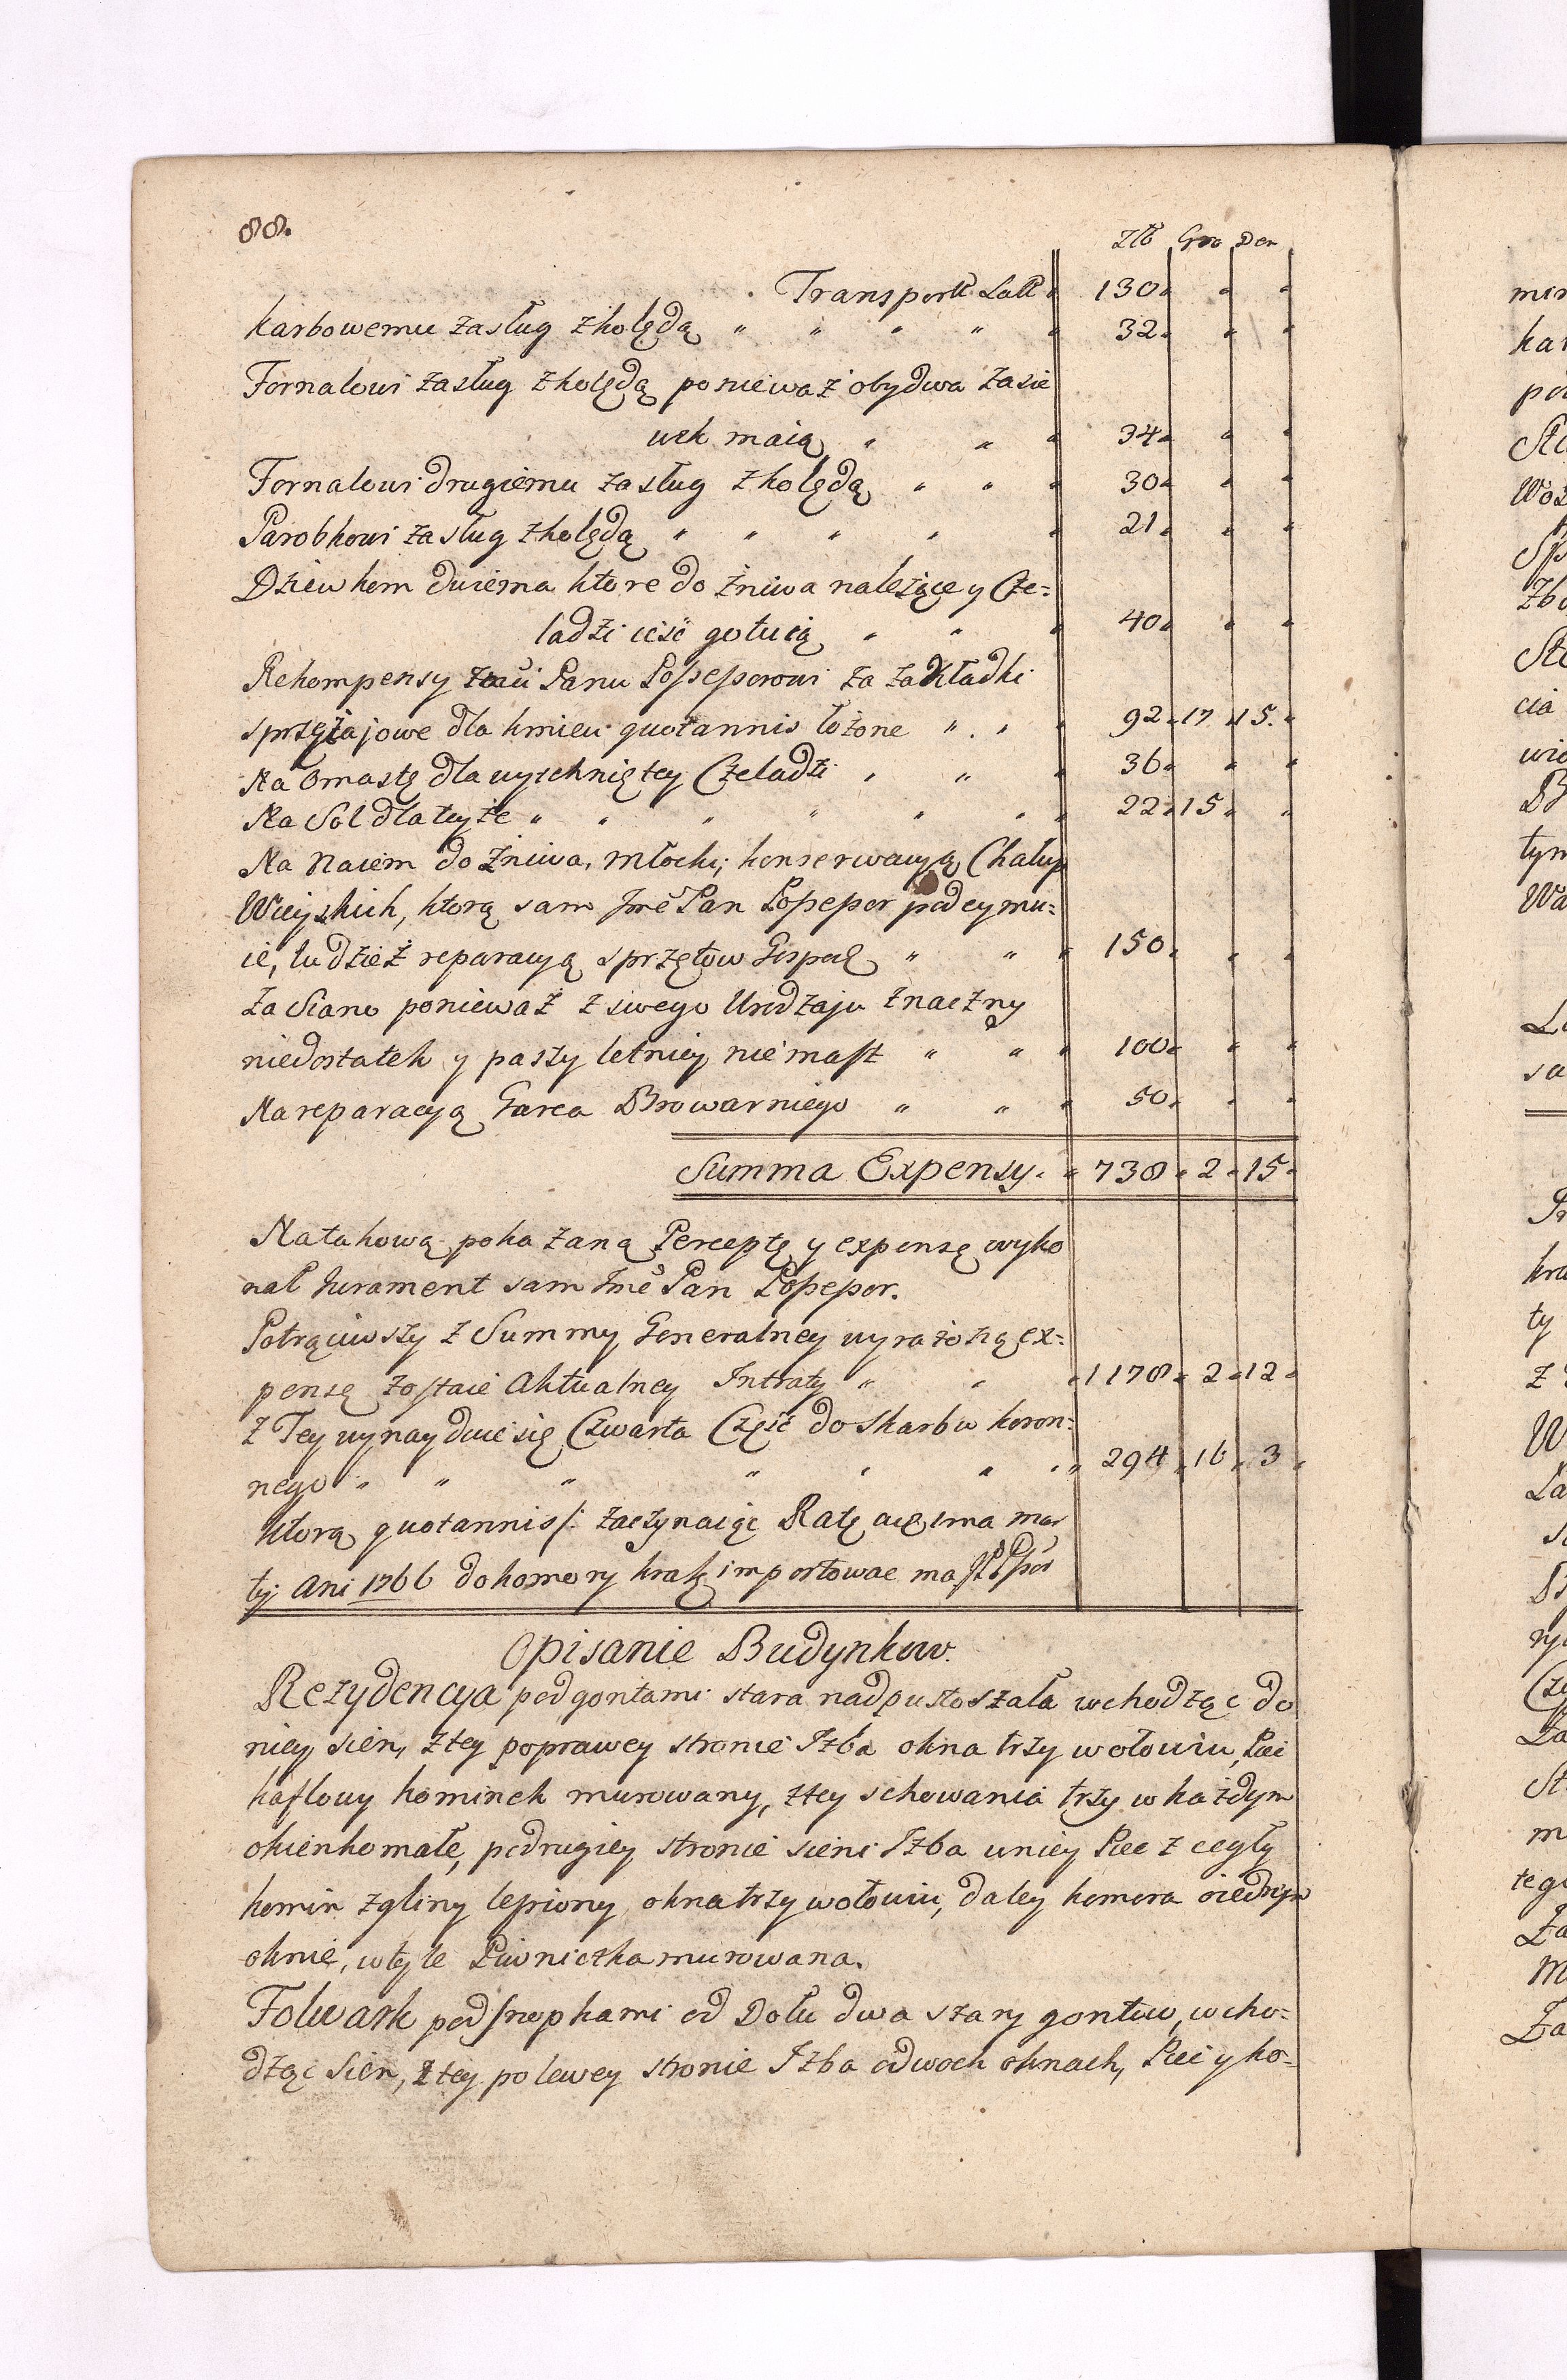 88.
Złł Gro Den
Transport Latt 130
karbowemu zasług z kolędą 32
Fornalowi zasług z kolędą ponieważ obydwa zasie
wek maią 34
Fornalowi drugiemu zasług z kolędą 30
Parobkowi zasług z kolędą 21
Dziewkom dwiema ktore do żniwa należące y Cze=
ladzi ieść gotuią 40
Rekompensy Panu Possessorowi za zakładki
sprzężajowe dla kmieci quotannis łożone 92 17 15
Na omastę dla wytchniętey Czeladzi 36
Na Sol dla teyże 22 15
Na Naiem do żniwa, młocki, konserwacyą Chałup
Wieyskich, ktorą sam Jmć Pan Possessor podeymu=
ie, tudzież reparacyą sprzętow Gospod 150
Za Siano ponieważ z swego Urodzaju znaczny
niedostatek y paszy letniey nie masz 100
Na reparacyą Garca Browarniego 50
Summa Expensy 738 2 15
Na takową pokazaną Perceptę y expensę wyko
nał Jurament sam Jmć Pan Possessor.
Potrąciwszy z Summy Generalney wyrażoną ex=
pensę zostaie Aktualney Intraty 1178 2 12
z Tey wynayduie się Czwarta Część do Skarbu koron=
nego 294 16 3
ktorą quotannis /: zaczynaiąc Ratę a 1ma mar
tij Ani 1766 do komory krak importowac ma
Opisanie Budynkow.
Rezydencya pod gontami stara nadpustoszała wchodząc do
niey sien, z tey po prawey stronie Izba okna trzy w ołowiu, Piec
kaflowy kominek murowany, z tey schowania trzy w każdym
okienko małe, po drugiey stronie sieni Izba w niey Piec z cegły
komin z gliny lepiony okna trzy w ołowiu, daley komora o iednym
oknie, w tyle Piwniczka murowana.
Folwark pod snopkami od Dołu dwa szary gontow, wcho=
dząc Sien, z tey po lewey stronie Izba o dwoch oknach, Piec y ko=